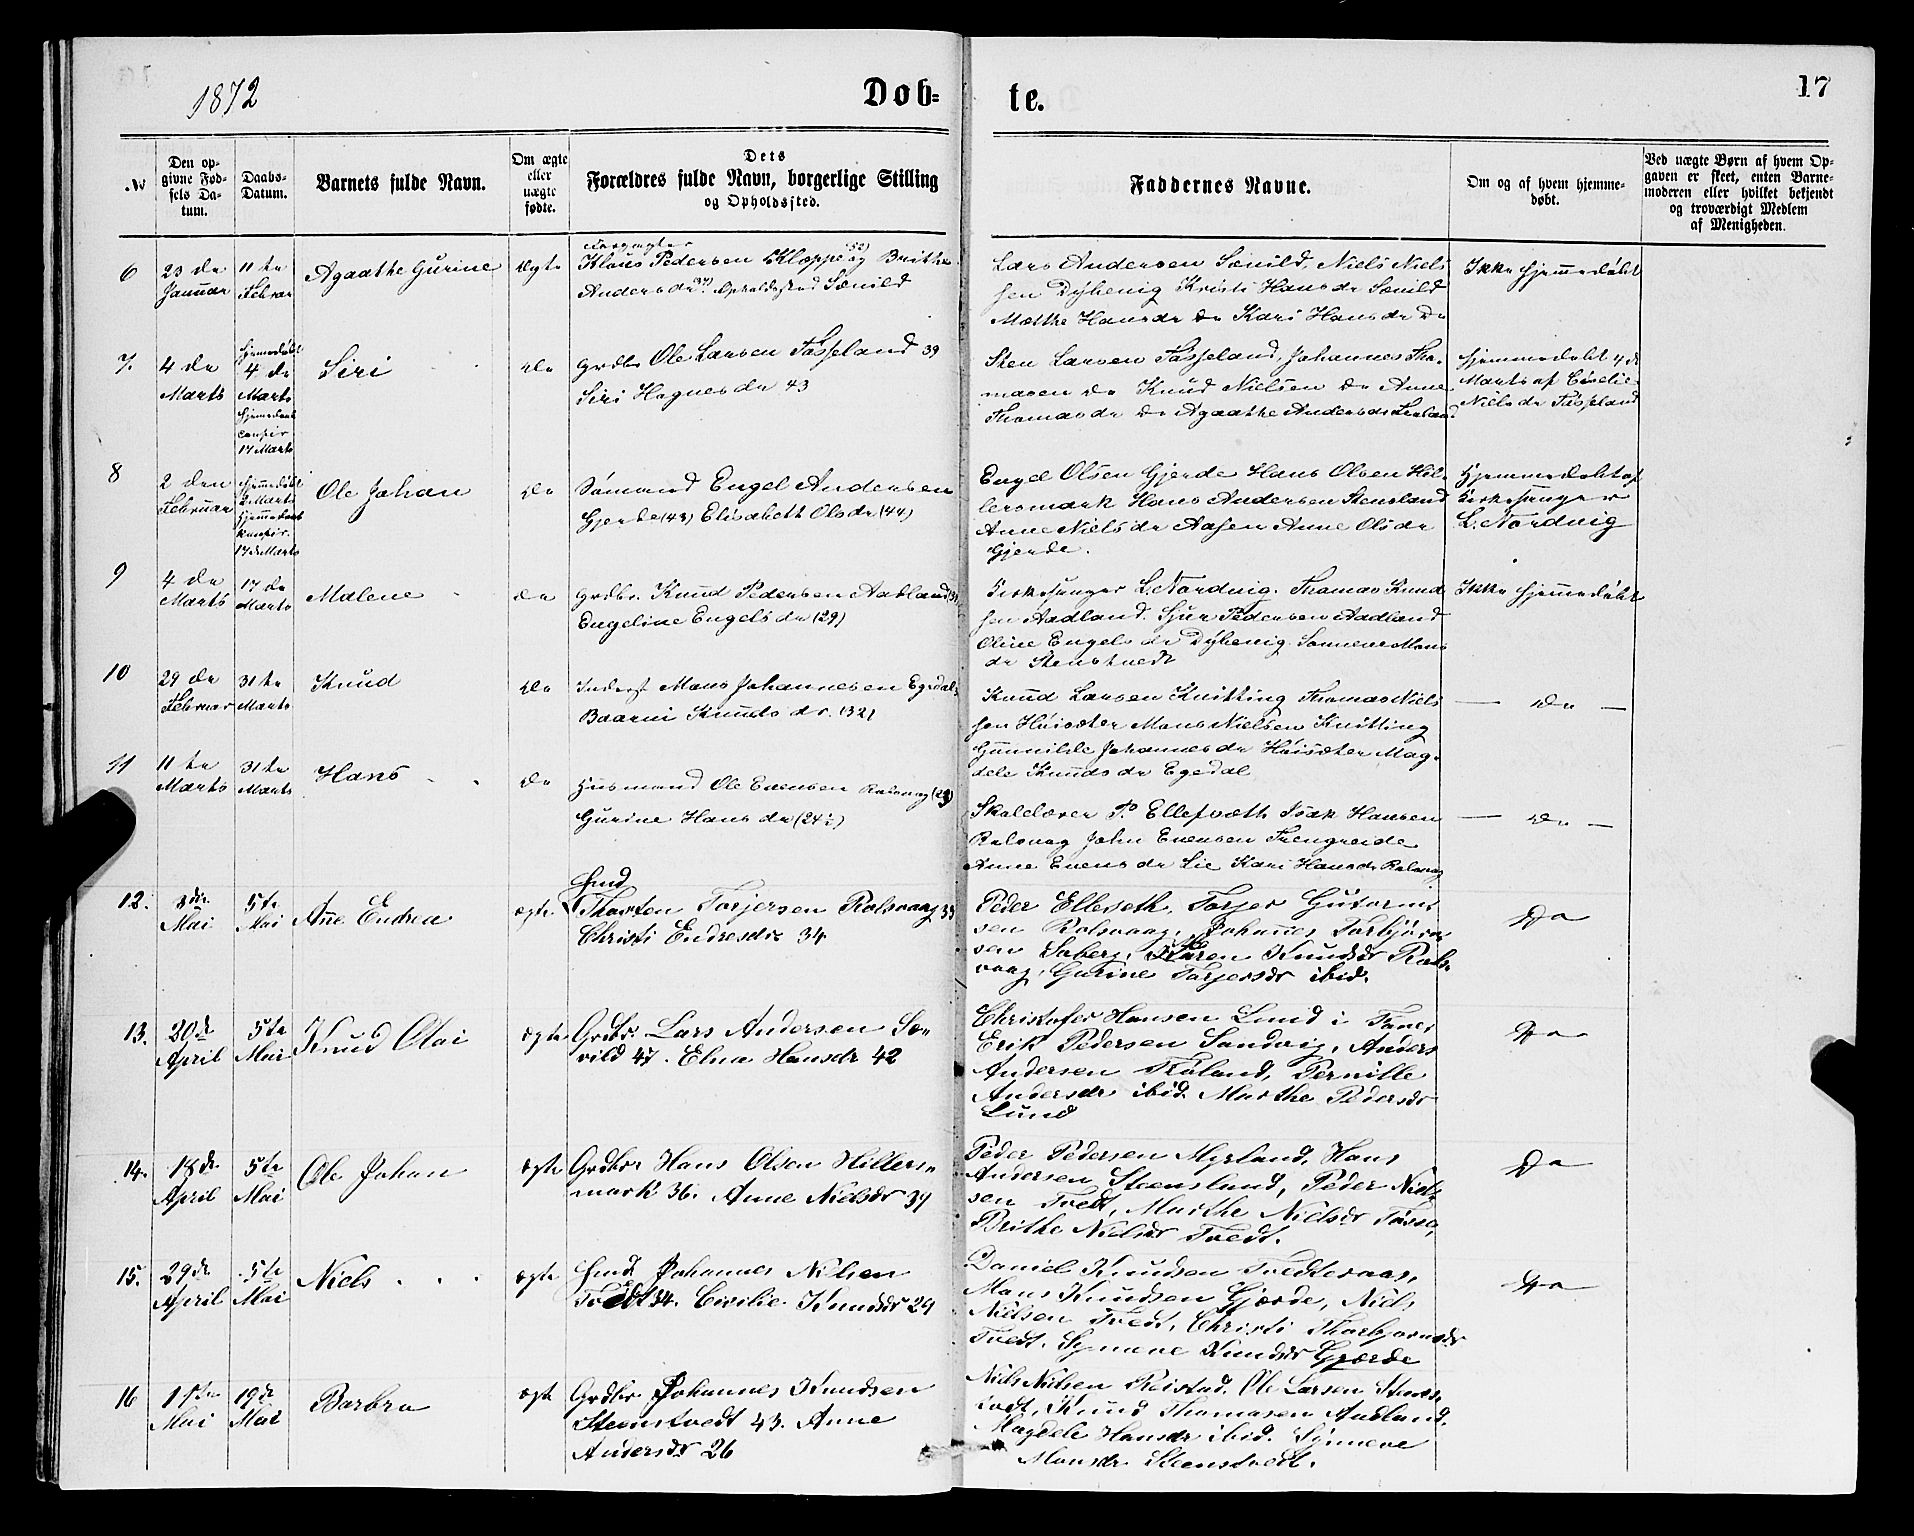 1872
Døb=
te.
17
№
Den op-
givne Fød-
sels Da-
tum.
Daabs-
Datum.
Barnets fulde Navn.
Om ægte
eller
uægte
fødte.
Dets
Forældres fulde Navn, borgerlige Stilling
og Opholdssted.
Faddernes Navne.
Om og af hvem hjemme-
døbt.
Ved uægte Børn af hvem Op-
gaven er skeet, enten Barne-
moderen eller hvilket bekjendt
og troværdigt Medlem
af Menigheden.
6
23 de
Januar
11te
Februar
Agaathe Gurine
ægte
Klaus Pedersen Kloppe og Brithe
Andersdr Opholdssted Sævild
Lars Andersen Sævild, Niels Niels
sen Dyhevig Kristi Hansdr Sævild
Mæthe Hansdr do Kari Hansdr do
Ikke hjemmedøbt
7.
4 de
Marts
Hjemmedøbt
4 de
Marts
17 Marts
Siri
do
Grdbr Ole Larsen Tøsseland 39
Siri Hagnesdr 43
Sten Larsen Tøsseland, Johannes Tho-
masen do Knud Nielsen do Anne
Thomasdr do Agaathe Andersdr
Hjemmedøbt 4 de
Marts af Cecilie
Nielsdr Tøsseland
8
2 den
Februar
Hjemmedøbt
2 Marts
17 Marts
Ole Johan
do
Sømand Engel Andersen
Gjerde (43) Elisabeth Olsdr (44)
Engel Olsen Gjerde Hans Olsen Hil-
lersmark Hans Andersen Stensland
Anne Nielsdr Aasen Anne Olsdr
Gjerde.
Hjemmedøbt af
Kirkesanger
L. Nordvig
9
4 de
Marts
17 de
Marts
Malene
do
Grdbr. Knud Pedersen Aadland
Engeline Engelsdr (29)
Kirkesanger L. Nordvig. Thomas Knud
sen Aadland. Sjur Pedersen Aadland
Oline Engelsdr Dyhevig Sanneve Mons
dr Stenstvedt
Ikke hjemmedøbt
10
29 de
Februar
31te
Marts
Knud
do
Inderst Mons Johannesen Egedal
Baarni Knudsdr. (32)
Knud Larsen Knitting Thomas Niels
sen Høisæter Mons Nielsen Knitting
Gunnilde Johannesdr Høisæter Mag-
dele Knudsdr Egedal
— do —
11
11te
Marts
31te
Marts
Hans
do
Husmand Ole Evensen Rolsvog
Gurine Hansdr (24½)
Skolelærer P. Ellefsæth Isak Hansen
Rolsvog John Evensen Trengereide
Anne Evensdr Lie Kari Hansdr Rolsvog
— do —
12.
3die
Mai
5te
Mai
Ane Endrea
ægte
Hmd
Thorsten Torjersen Rolsvaag 39
Christi Endresdr 34
Peder Ellesæth, Torjer Gutorm
sen Rolsvaag, Johannes Torbjørn
sen Soberg, Karen Knudsdr Rols-
vaag, Gurine Torjersdr ibid.
Do
13.
20de
April
5te
Mai
Knud Olai
ægte
Grdbr. Lars Andersen Sæ-
vild 47. Elna Hansdr 42
Christofer Hansen Lund i Fane,
Erik Pedersen Sandvig, Anders
Andersen Frøland, Pernille
Andersdr ibid. Marthe Pedersdr
Lund
Do
14.
18de
April
5te
Mai
Ole Johan
ægte
Grdbr Hans Olsen Hillers-
mark 36. Anne Nielsdr 39
Peder Pedersen Myrland, Hans
Andersen Steensland, Peder Niel-
sen Tvedt, Marthe Nielsdr Tøsse,
Brithe Nielsdr Tvedt.
Do
15.
29de
April
5te
Mai
Niels
ægte
Hmd Johannes Nilsen
Tvedt 34. Cicilie Knudsdr 29
Daniel Knudsen Tvedteraas,
Mons Knudsen Gjerde, Niels
Nielsen Tvedt, Christi Thorbjørnsdr
Tvedt, Synneve Knudsdr Gjerde
Do
16
Mai
19de
Mai
Barbra
ægte
Grdbr Johannes Knudsen
Steenstvedt 43. Anne
Andersdr 26
Niels Nielsen Reistad, Ole Larsen Steens-
tvedt, Knud Thomasen Aadland.
Magdele Hansdr ibid. Synneve
Monsdr Steenstvedt.